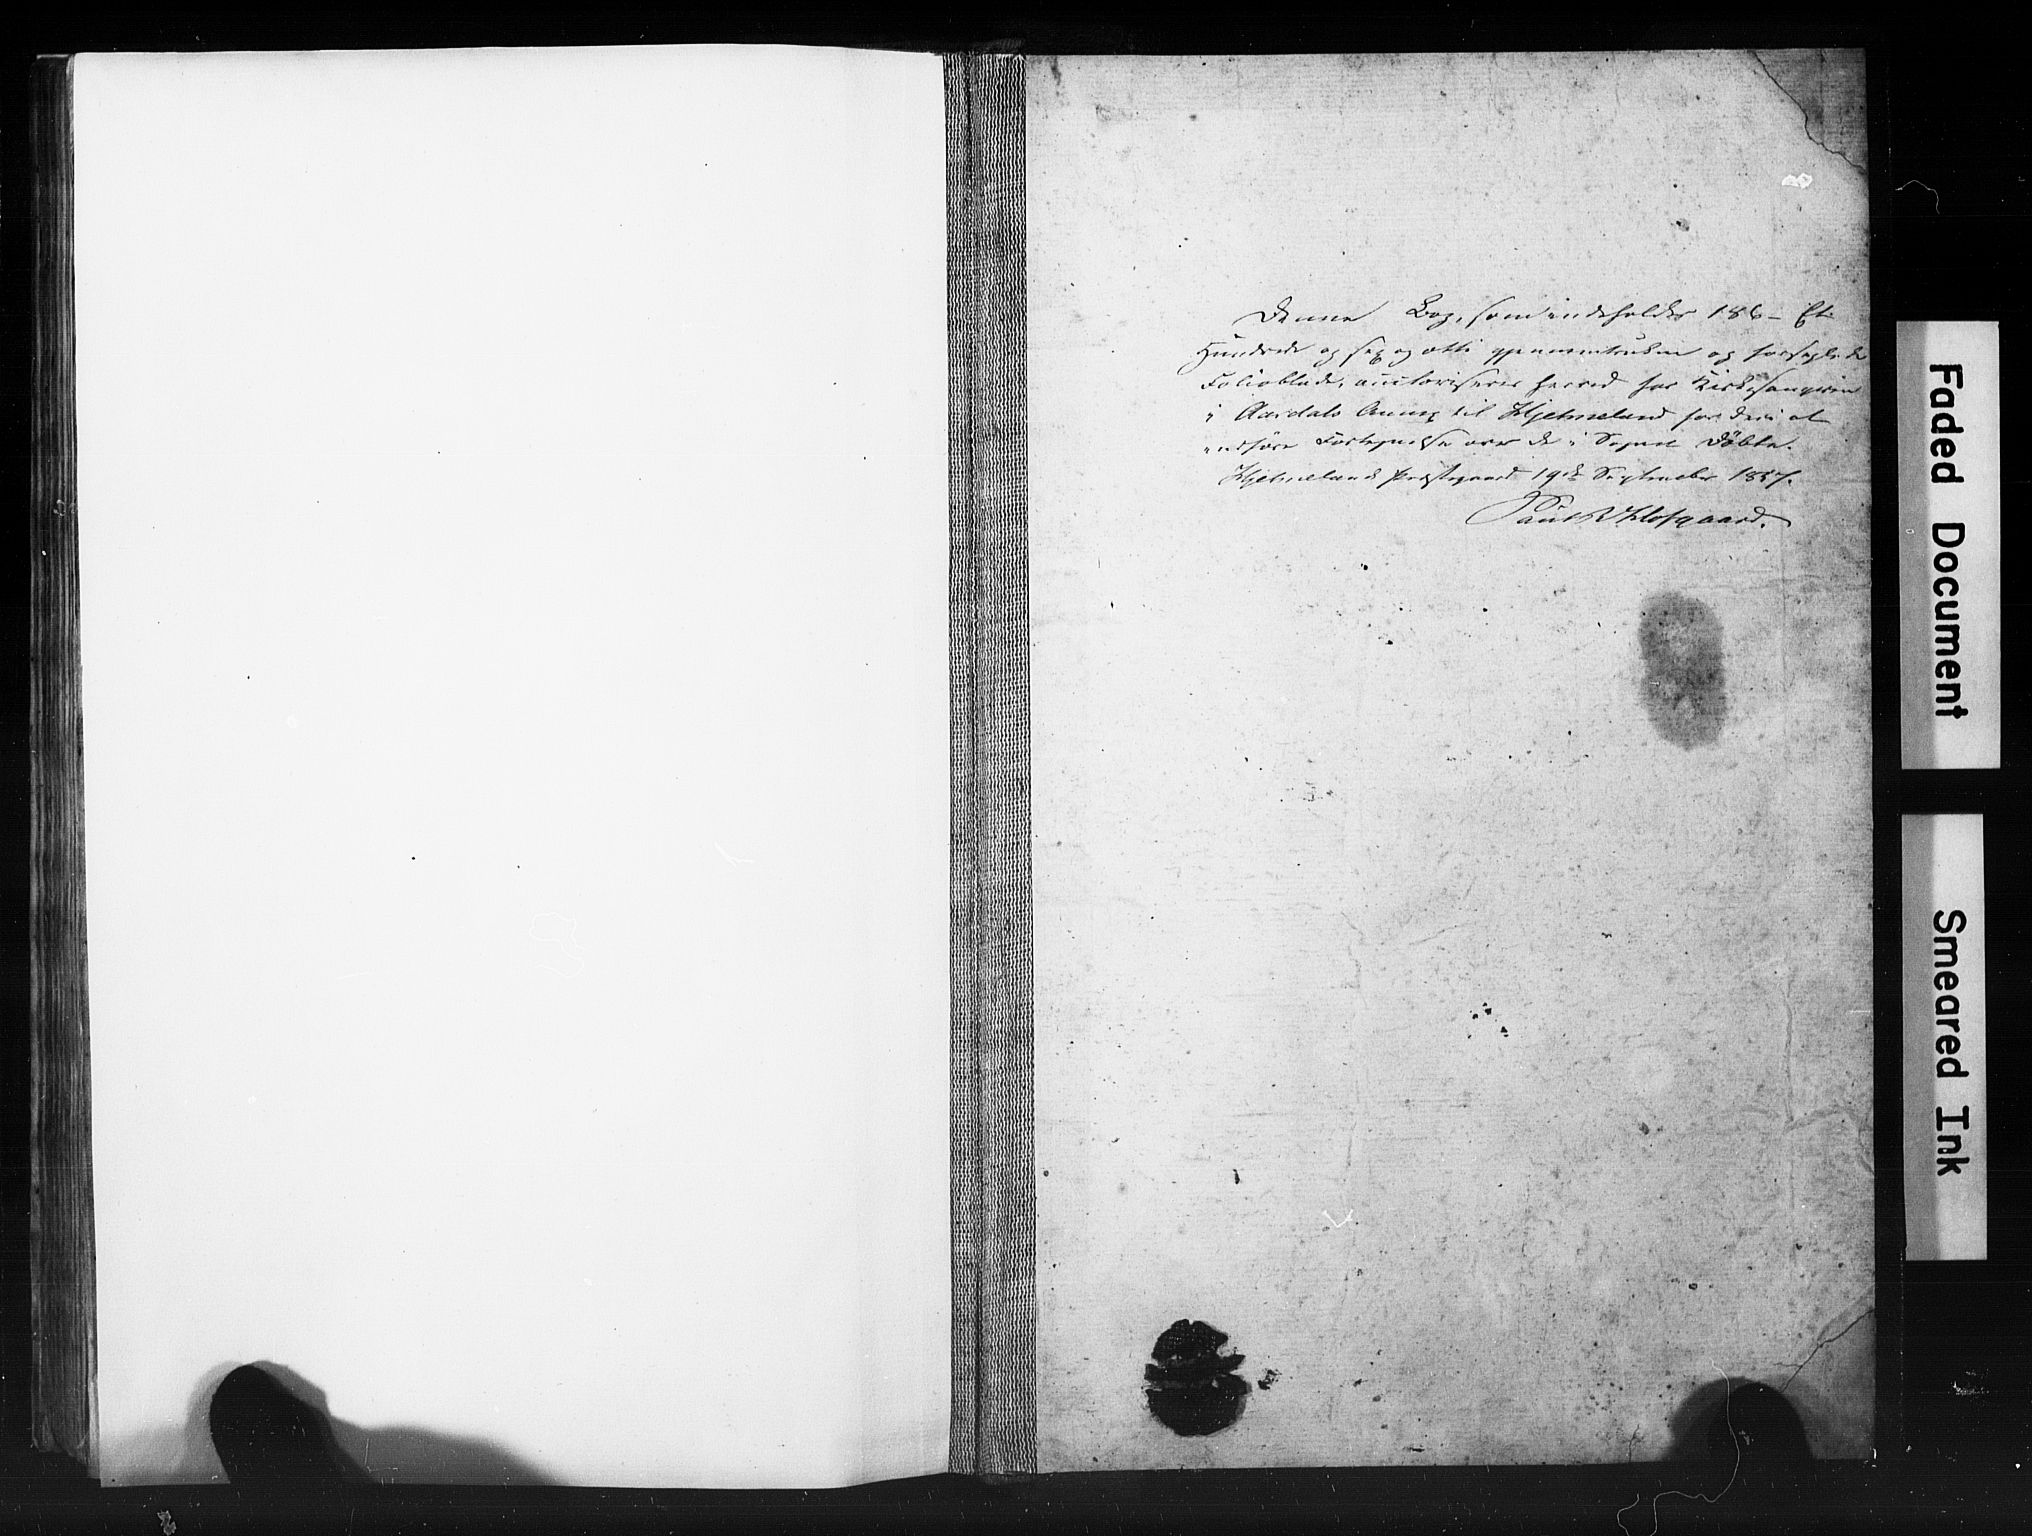 Denne Bog, som indeholder 186 - Et
Hundrede og sex og otti gjennemtrukne og forseglede
Folioblade, auctoriseres herved for Kirkesangeren
i Aardals Annex til Hjelmeland for deri at
indføre Fortegnelse over de i Sognet Døbte.
Hjelmelands Præstegaard 19de September 1857.
Faded Document
Smeared Ink